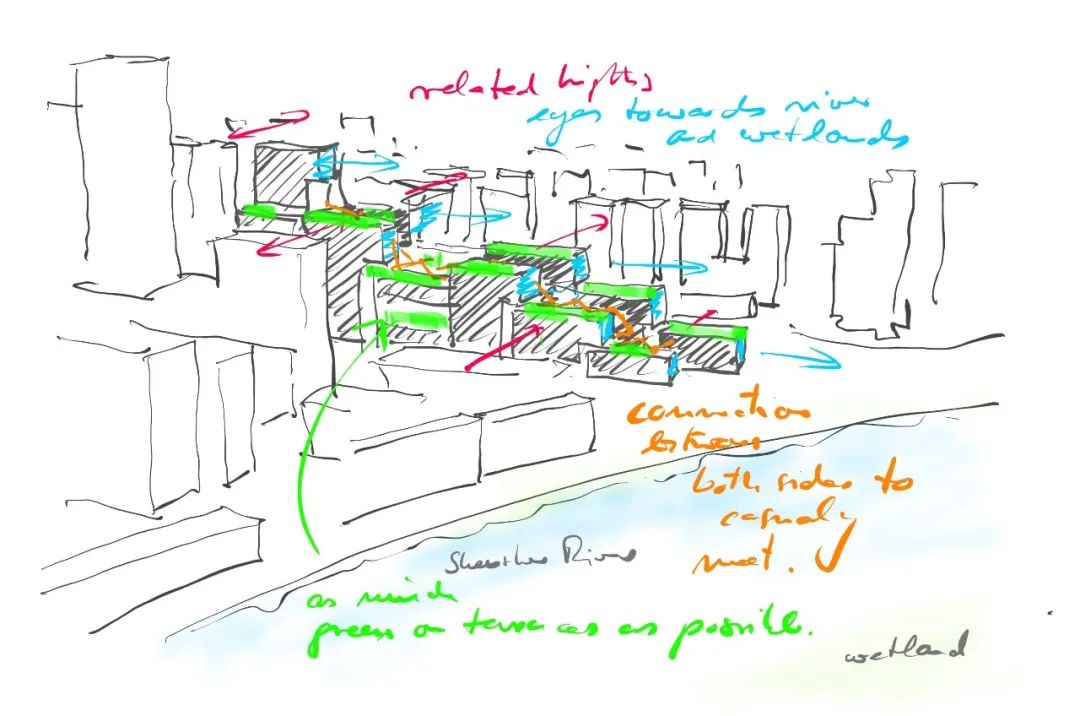 related hights
eyes towards river
and wetlands
connection
between
both sides to
casualy
meet.
Shenzhen River
as much
green on terraces as possible.
wetland